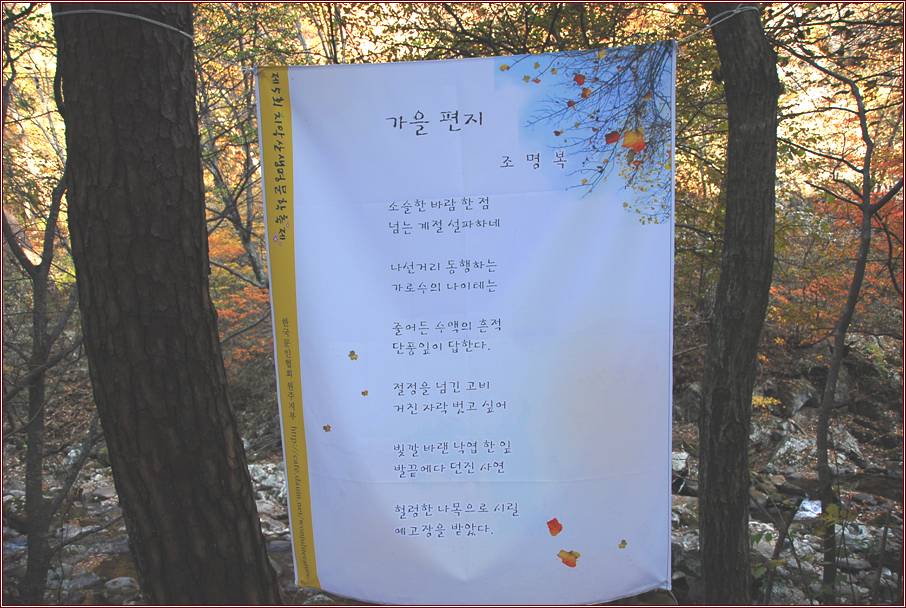 가을 편지
조 명 복
소슬한 바람 한 점
넘는 계절 설파하네
나선거리 동행하는
가로수의 나이테는
줄어든 수액의 흔적
단풍잎이 답한다.
절정을 넘긴 고비
거친 자락 벗고 싶어
빛깔 바랜 낙엽 한 잎
발끝에다 던진 사연
헐렁한 나목으로 시릴
예고장을 받았다.
제5회 치악산생명문학축제
한국문인협회 원주지부